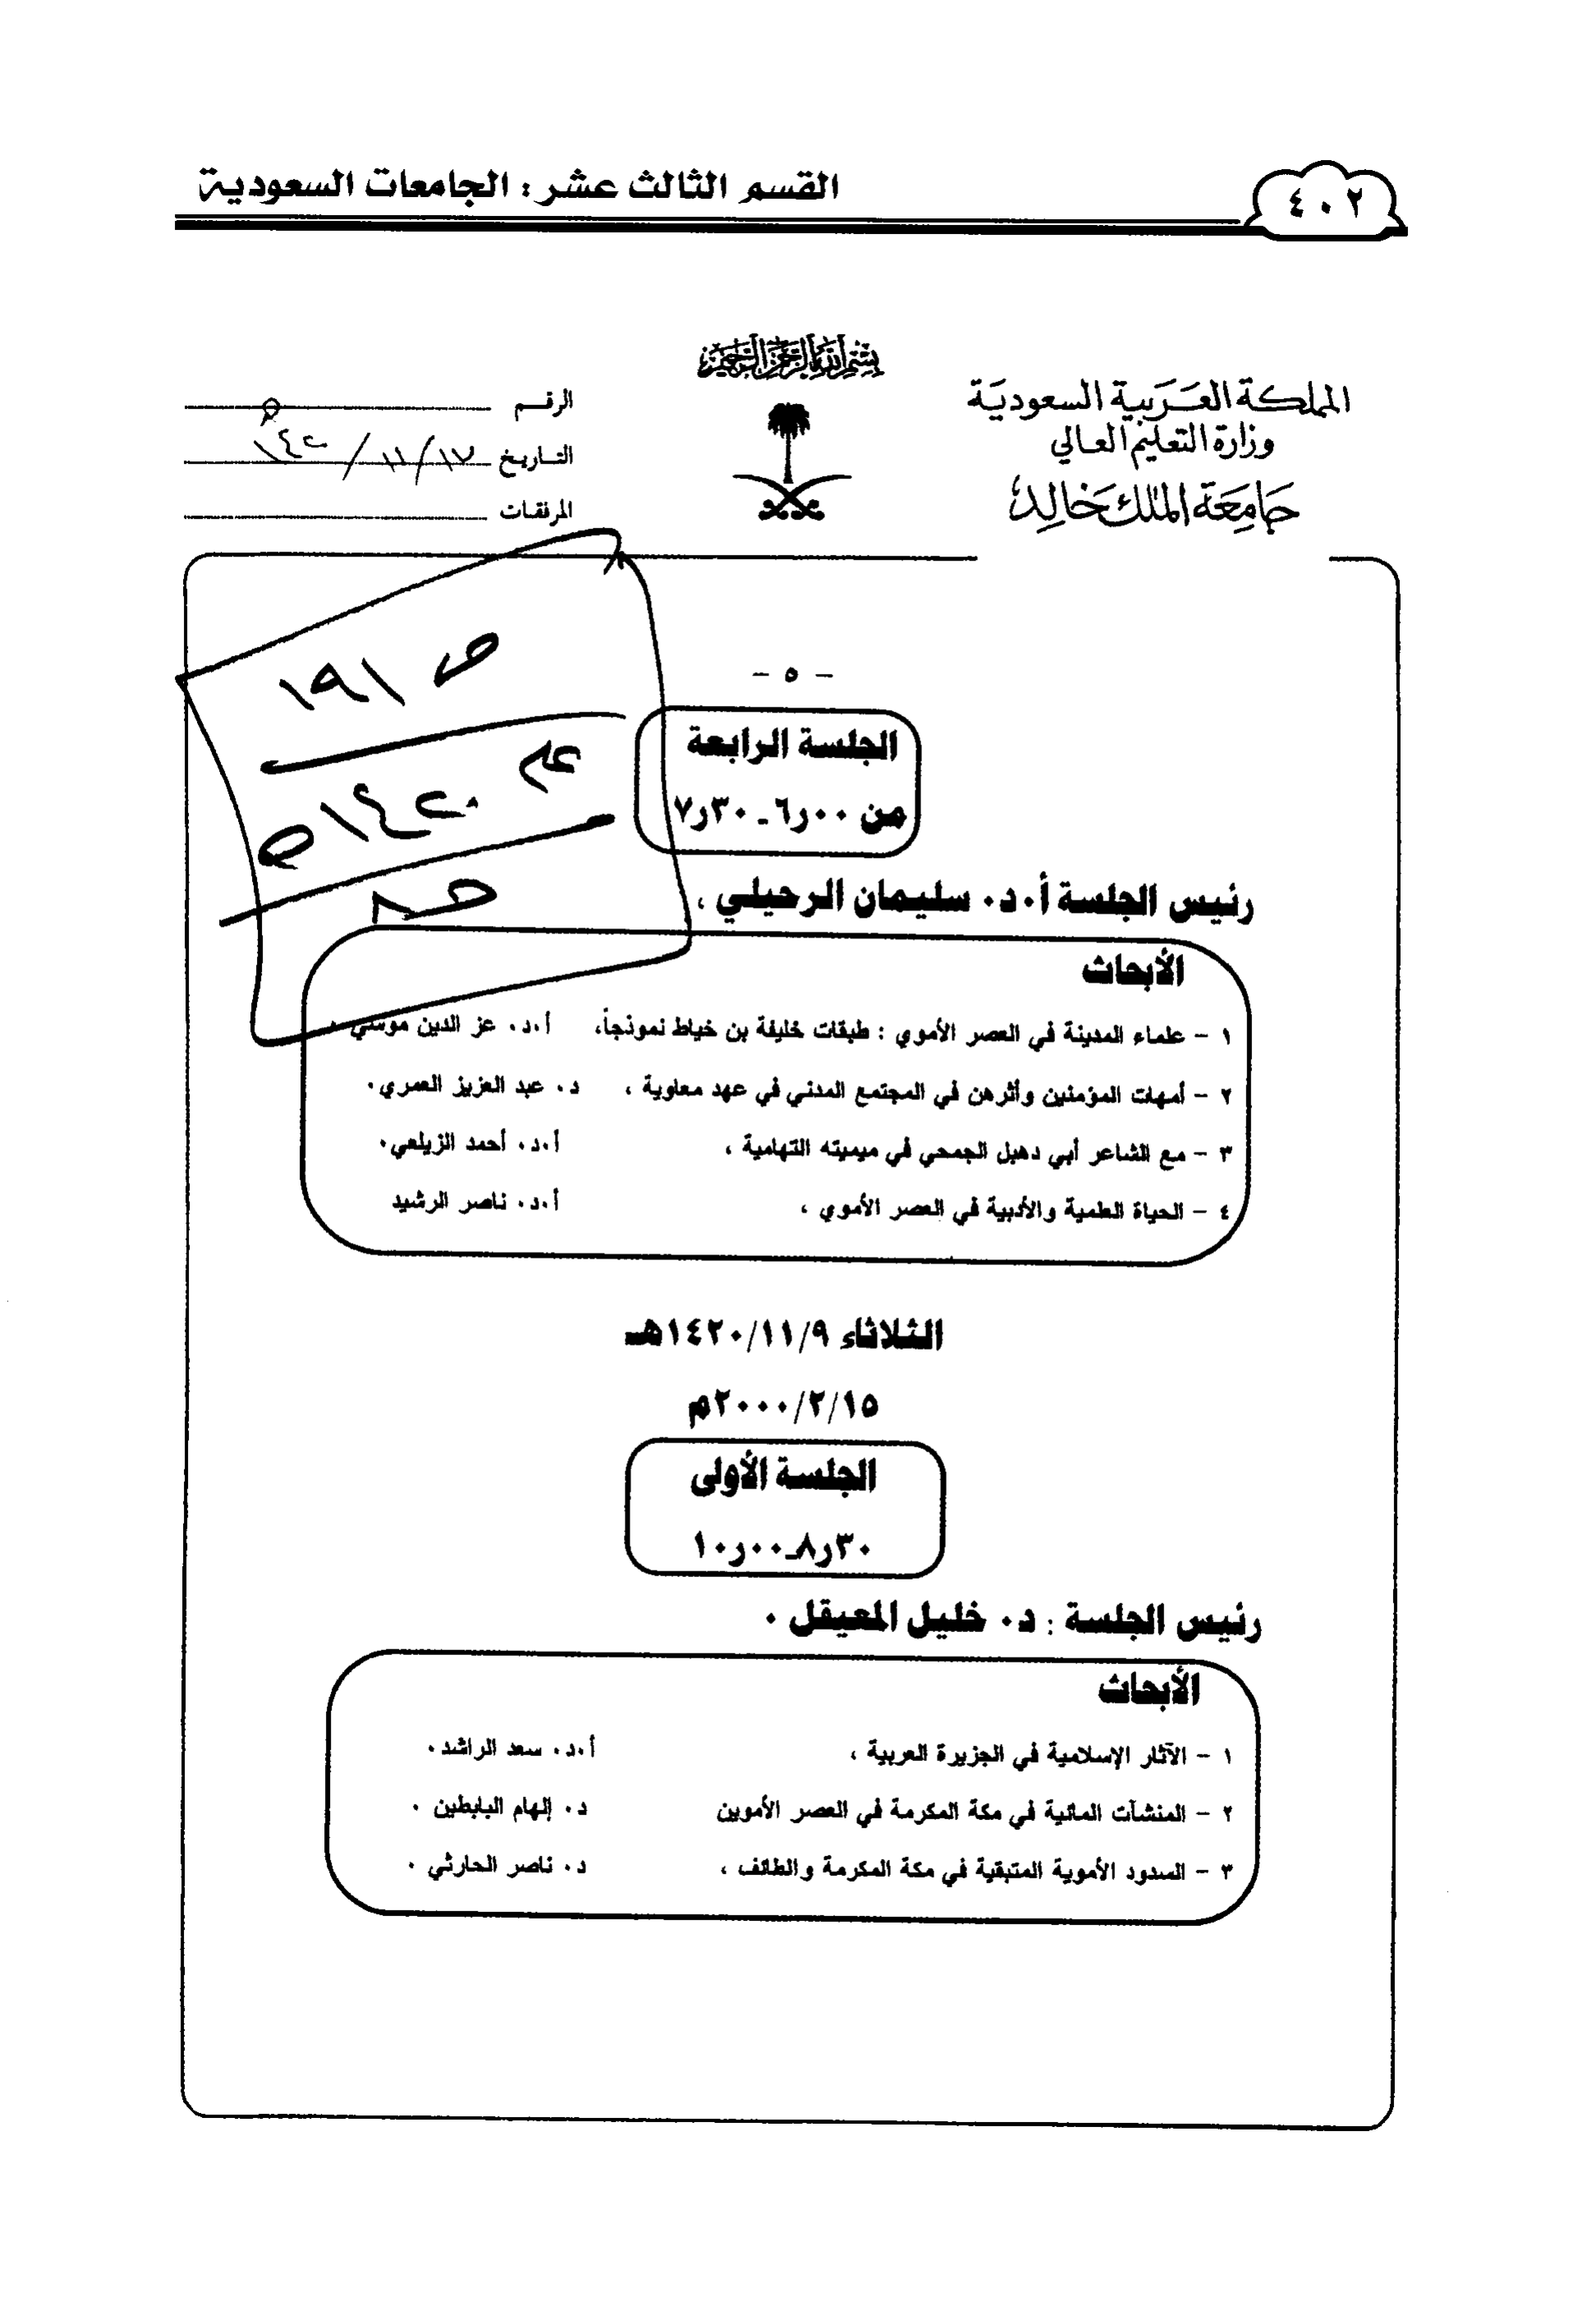 ٤٠٢
القسم الثالث عشر : الجامعات السعودية
بسم الله الرحمن الرحيم
المملكة العربية السعودية
وزارة التعليم العالي
جامعة الملك خالد
الرقم
التاريخ ١٧/١١/١٤٢٠
المرفقات
ص ١٩١
عام ١٤٢٠هـ
- ٥ -
الجلسة الرابعة
من ٦٫٠٠ - ٧٫٣٠
رئيس الجلسة أ.د. سليمان الرحيلي ،
الأبحاث
١ - علماء المدينة في العصر الأموي : طبقات خليفة بن خياط نموذجاً، أ.د. عز الدين موسى .
٢ - أمهات المؤمنين وأثرهن في المجتمع المدني في عهد معاوية ، د. عبد العزيز العمري.
٣ - مع الشاعر أبي دهبل الجمحي في ميميته التهامية ، أ.د. أحمد الزيلعي.
٤ - الحياة العلمية والأدبية في العصر الأموي ، أ.د. ناصر الرشيد
الثلاثاء ١٤٢٠/١١/٩هـ
٢٠٠٠/٢/١٥م
الجلسة الأولى
٨٫٣٠ـ١٠٫٠٠
رئيس الجلسة : د. خليل المعيقل .
الأبحاث
١ - الآثار الإسلامية في الجزيرة العربية ، أ.د. سعد الراشد.
٢ - المنشآت المائية في مكة المكرمة في العصر الأموين د. إلهام البابطين .
٣ - السدود الأموية المتبقية في مكة المكرمة والطائف ، د. ناصر الحارثي .